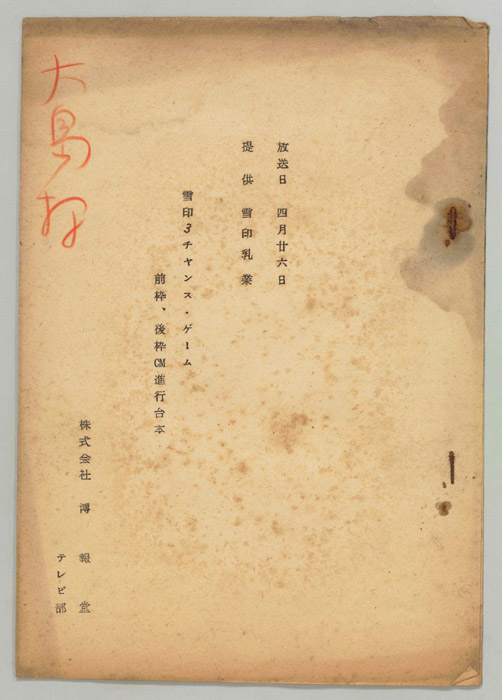 放送日 四月廿六日
提供 雪印乳業
雪印3チヤンス・ゲーム
前枠、後枠CM進行台本
株式会社 博報堂
テレビ部
大島